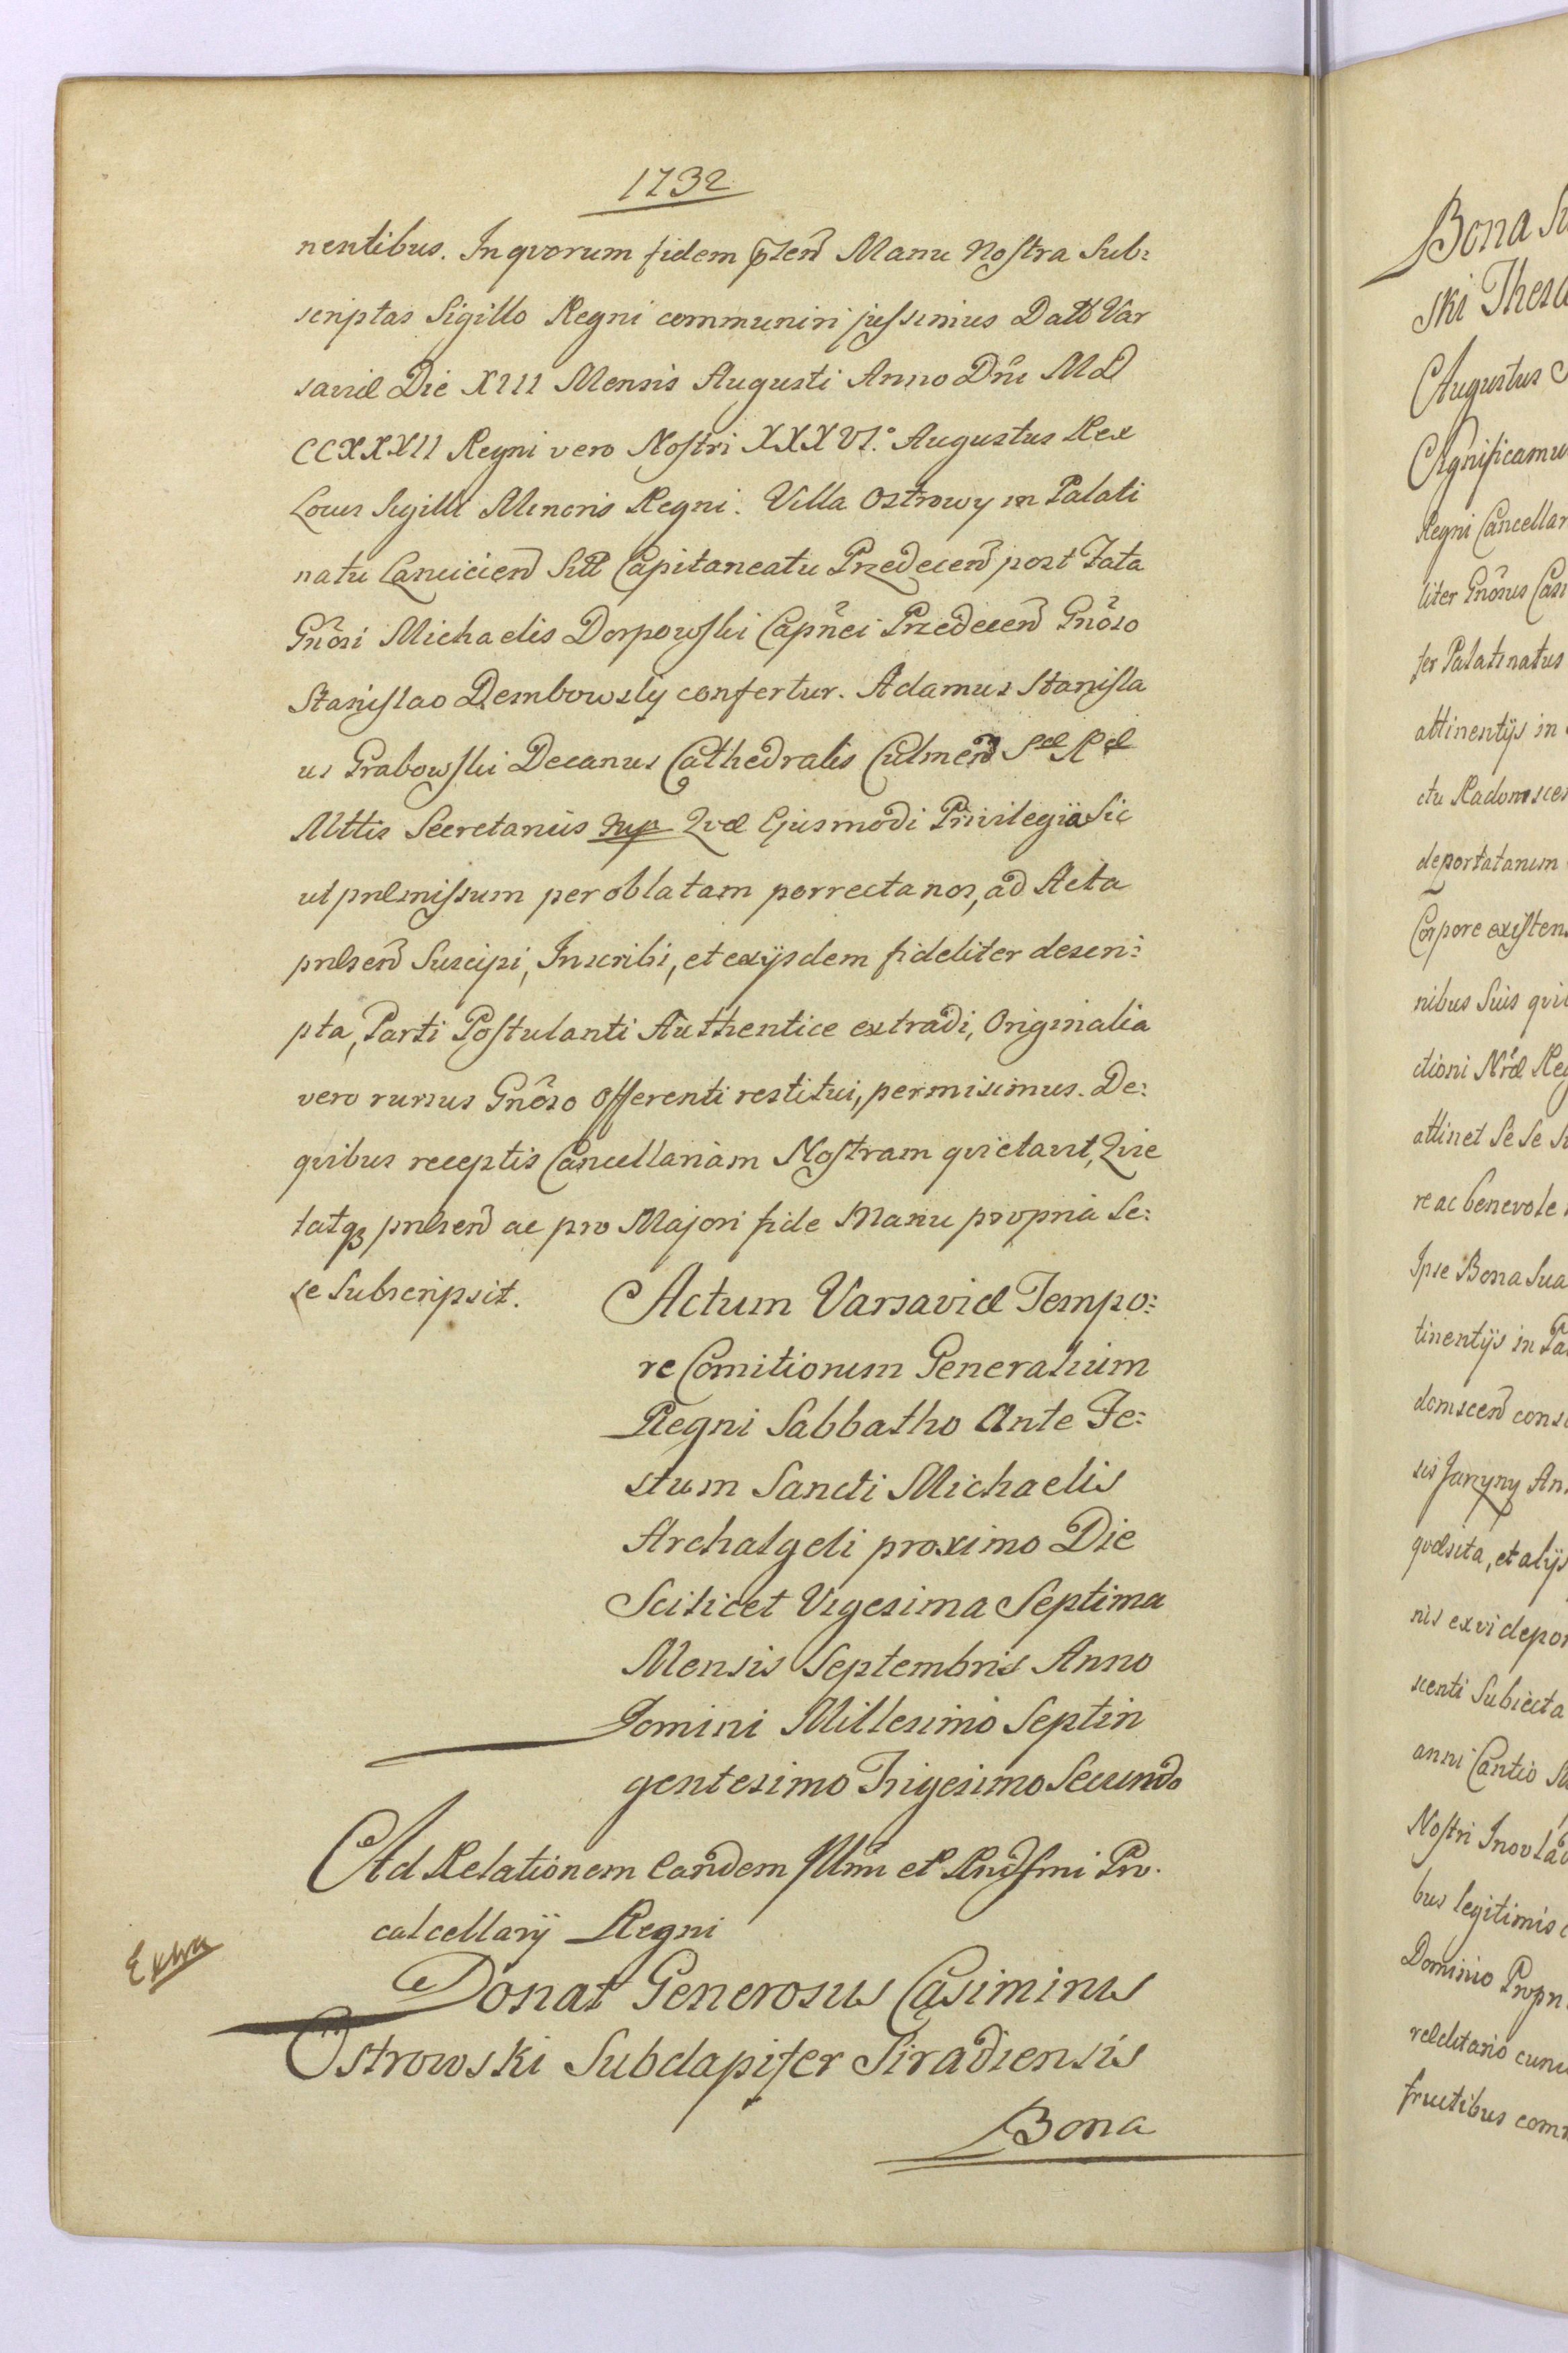 1732
nentibus. In qvorum fidem p̄sen̄ Manu Nostra Sub:
scriptas Sigillo Regni communiri jussimus Datt Var
saviæ Die XIII Mensis Augusti Anno Dn̄i MD
CCXXXII Regni vero Nostri XXXVI.° Augustus Rex
Locus Sigilli Minoris Regni. Villa Ostrowy in Palati
natu Lancicien̄ Sub Capitaneatu Przedecen̄ post Fata
Gn̄osi Michaelis Dorpowski Capn̄ei Przedecen̄ Gn̄oso
Stanislao Dembowsky confertur. Adamus Stanisla
us Grabowski Decanus Cathedralis Culmen̄ Sæ Ræ
Mttis Secretarius mp Qvæ Ejusmodi Privilegia Sic
ut præmissum per oblatam porrecta nos, ad Acta
præsen̄ Suscipi, Inscribi, et exijsdem fideliter descri:
pta, Parti Postulanti Authentice extradi, Originalia
vero rursus Gn̄oso Offerenti restitui, permisimus. De:
qvibus receptis Cancellariam Nostram qvietavit, Qvie
tatq3 præsen̄ ac pro Majori fide Manu propria Se:
se Subscripsit.
Actum Varsaviæ Tempo:
re Comitiorum Generalium
Regni Sabbatho Ante Fe:
stum Sancti Michaelis
Archalgeli proximo Die
Scilicet Vigesima Septima
Mensis Septembris Anno
Domini Millesimo Septin
gentesimo Trigesimo Secundo
Ad Relationem Eandem Illm̄i et Rndsmi Pro.
calcellarij Regni
Extra
Donat Generosus Casimirus
Ostrowski Subdapifer Siradiensis
Bona
Bona
ski
Augustus
Significamu
Regni Cancellar
liter Gn̄osus Casi
fer Palatinatus
attinentijs in
ctu Radomscen
deportatarum
Corpore existen
nibus Suis qvi
ctioni Nræ Reg
attinet Se Se
re ac benevole
Ipse Bona Sua
tinentijs in Pa
domscen̄ cons
An
qvæsita, et alijs
nis ex vi depor
scenti Subiecta
anni
Nostri
bus legitimis
Dominio Propri
ræditario cum
fructibus com